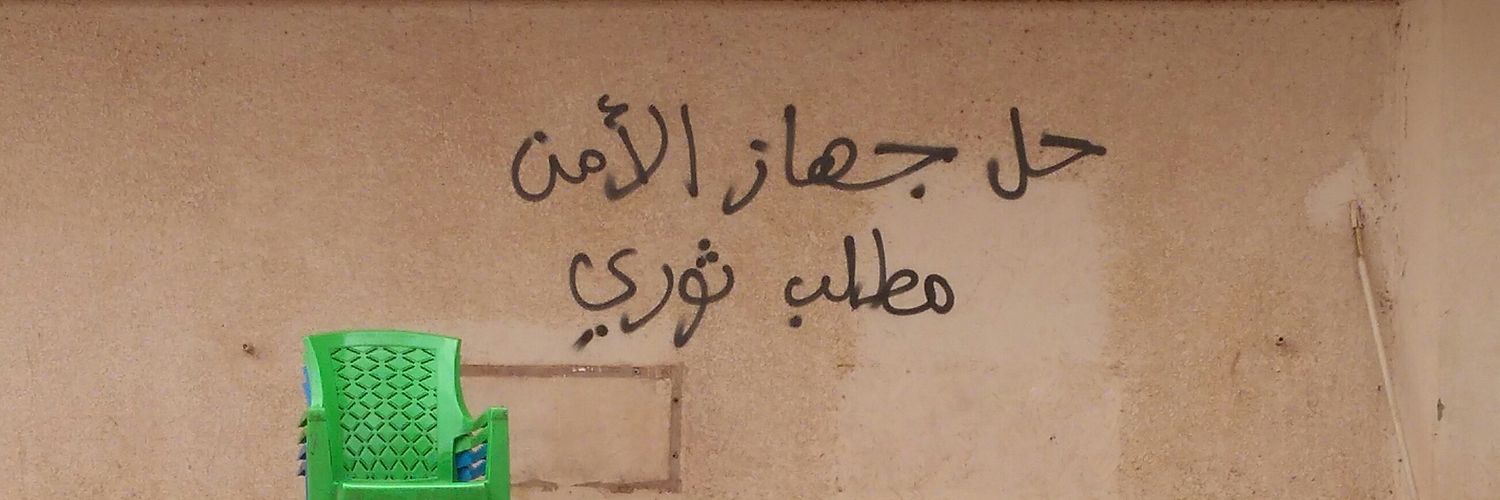 حل جهاز الأمن
مطلب ثوري